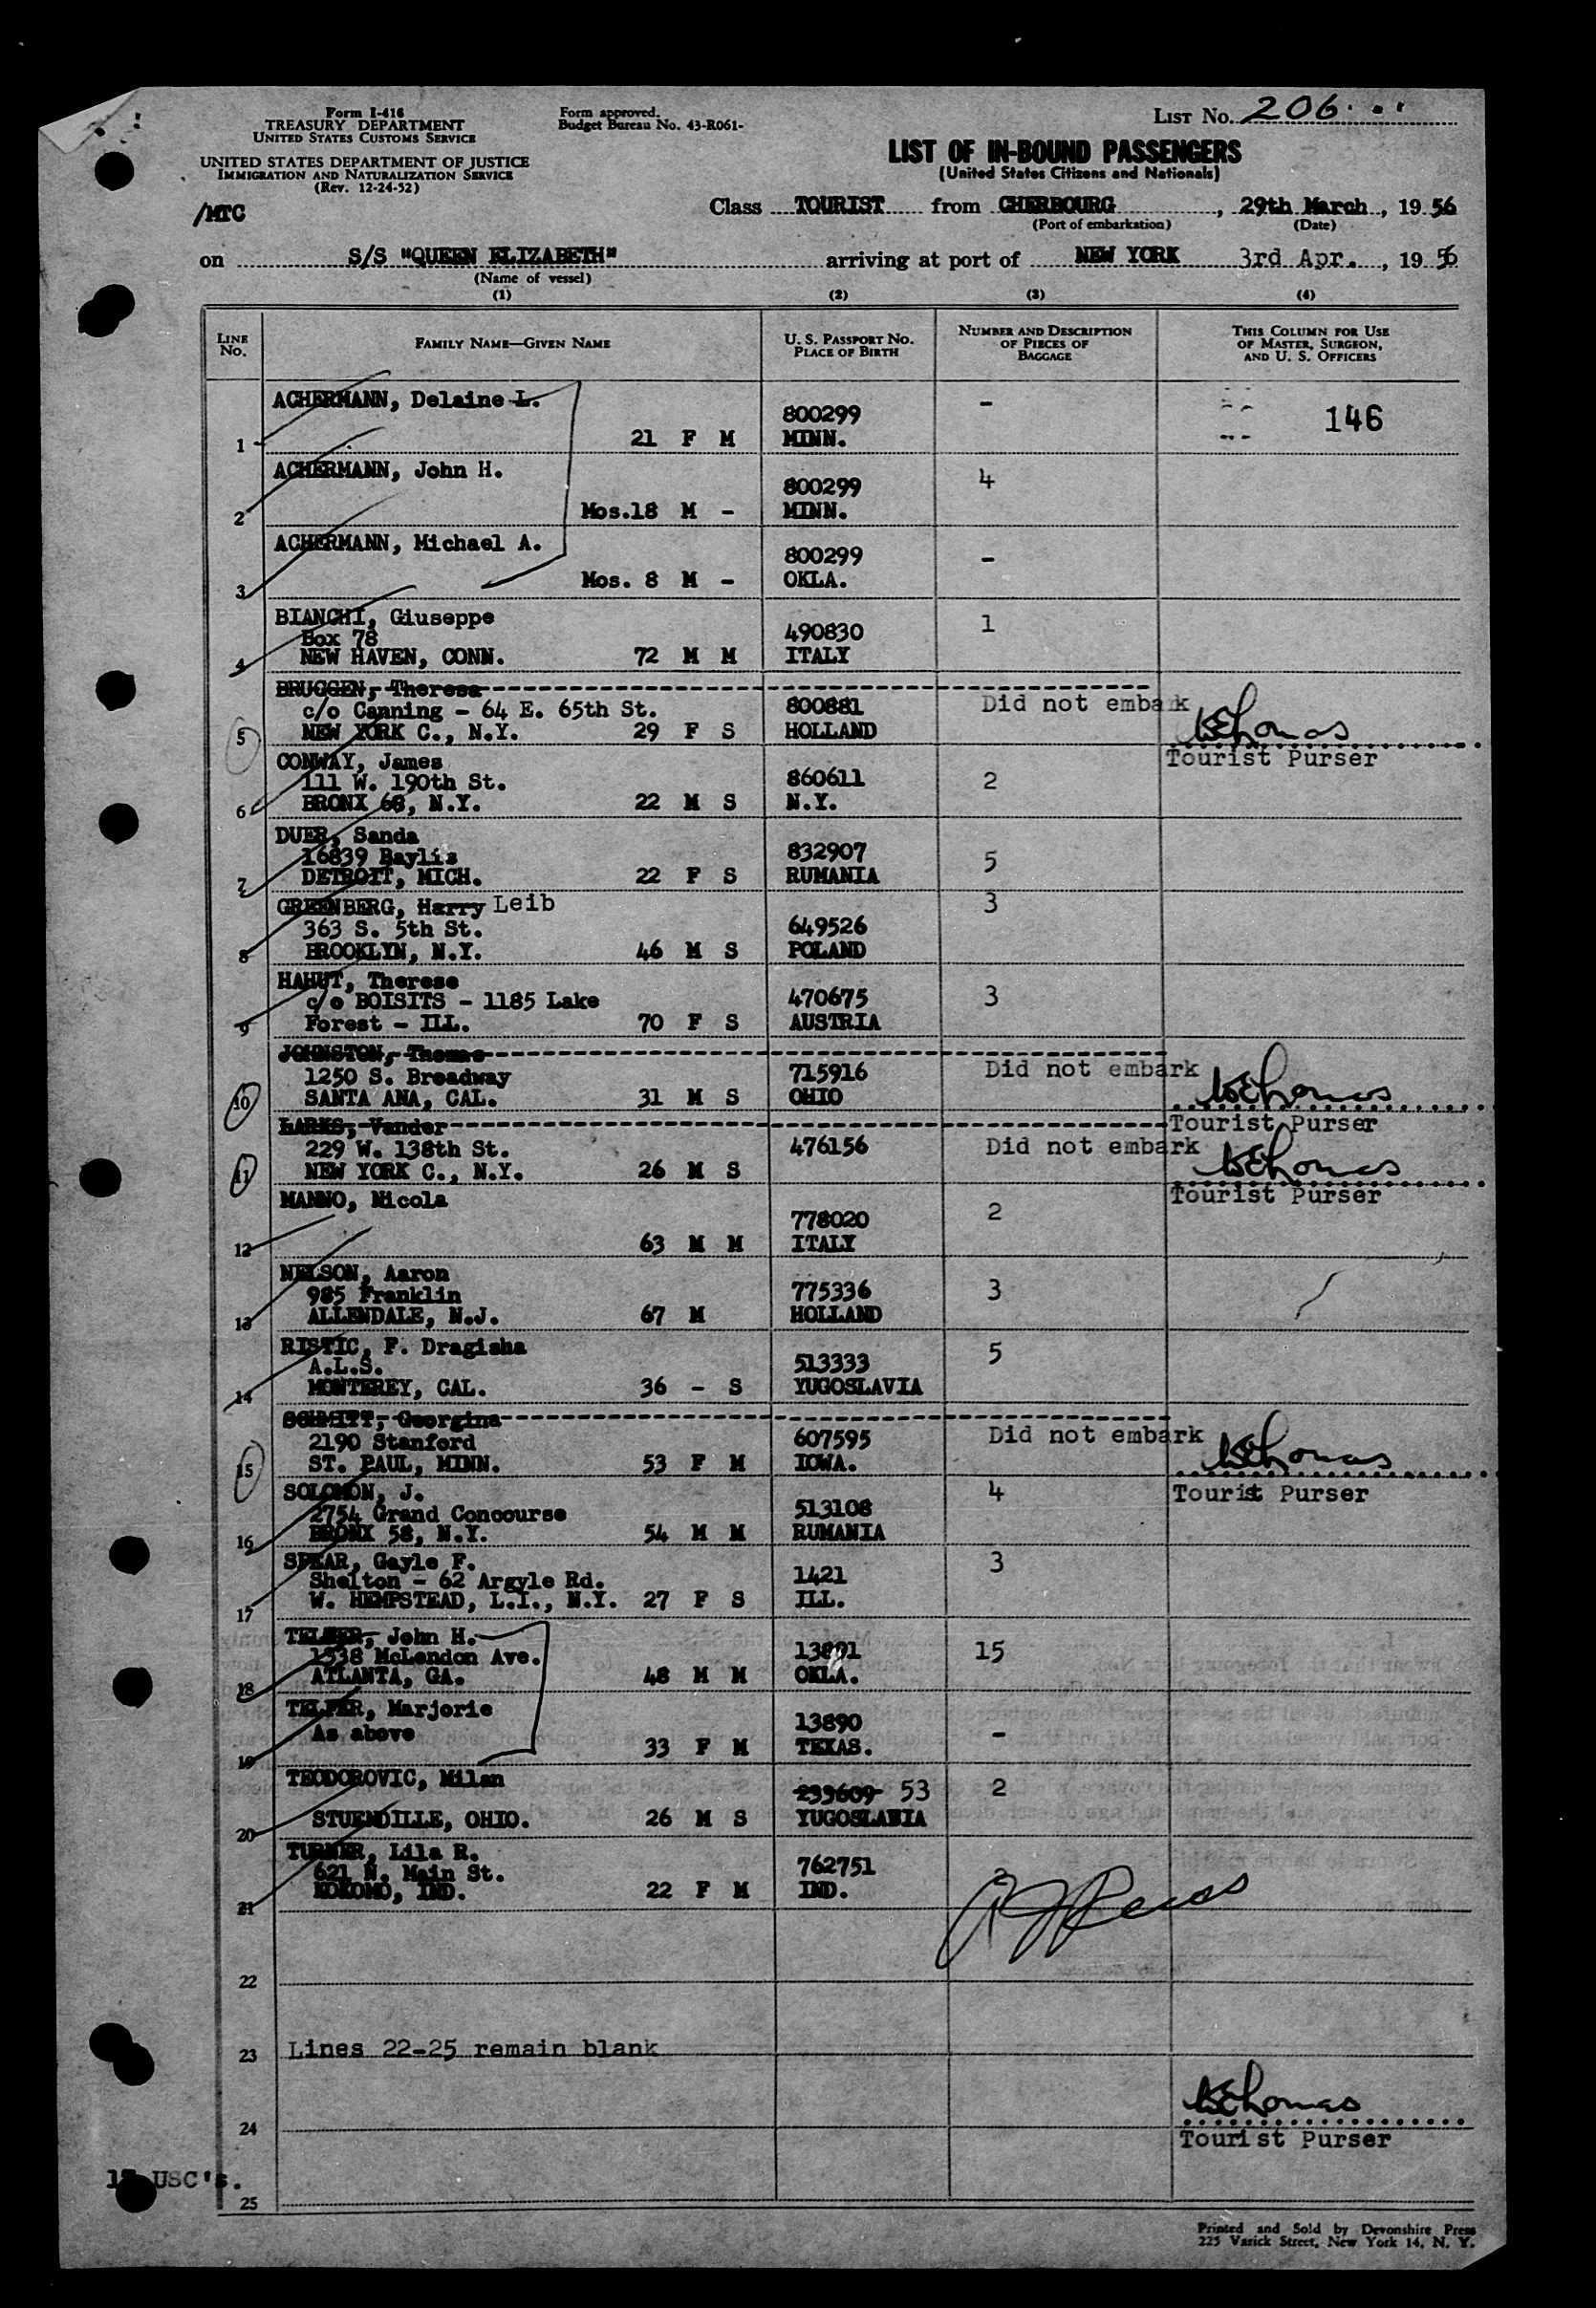 Form I-416
TREASURY DEPARTMENT
UNITED STATES CUSTOMS SERVICE
UNITED STATES DEPARTMENT OF JUSTICE
IMMIGRATION AND NATURALIZATION SERVICE
(Rev. 12-24-52)
/MTC
Form approved.
Budget Bureau No. 43-R061-
LIST No. 206
LIST OF IN-BOUND PASSENGERS
(United States Citizens and Nationals)
Class TOURIST from CHERBOURG, 29th March, 19 56
(Port of embarkation) (Date)
on S/S "QUEEN ELIZABETH" arriving at port of NEW YORK 3rd Apr., 19 56
(Name of vessel)
(1) (2) (3) (4)
LINE No. FAMILY NAME—GIVEN NAME U. S. PASSPORT No. PLACE OF BIRTH NUMBER AND DESCRIPTION OF PIECES OF BAGGAGE THIS COLUMN FOR USE OF MASTER, SURGEON, AND U. S. OFFICERS
ACHERMANN, Delaine L. 800299 - 146
1 21 F M MINN.
ACHERMANN, John H. 800299 4
2 Mos.18 M - MINN.
ACHERMANN, Michael A. 800299 -
3 Mos. 8 M - OKLA.
BIANCHI, Giuseppe 1
Box 78 490830
4 NEW HAVEN, CONN. 72 M M ITALY
BRUGGEN, Theresa
c/o Canning - 64 E. 65th St. 800881 Did not embark
5 NEW YORK C., N.Y. 29 F S HOLLAND KEThomas
Tourist Purser
CONWAY, James
111 W. 190th St. 860611 2
6 BRONX 68, N.Y. 22 M S N.Y.
DUER, Sanda
16839 Baylis 832907 5
7 DETROIT, MICH. 22 F S RUMANIA
GREENBERG, Harry Leib 3
363 S. 5th St. 649526
8 BROOKLYN, N.Y. 46 M S POLAND
HAHUT, Therese
c/o BOISITS - 1185 Lake 470675 3
9 Forest - ILL. 70 F S AUSTRIA
JOHNSTON, Thomas
1250 S. Broadway 715916 Did not embark
10 SANTA ANA, CAL. 31 M S OHIO KEThomas
Tourist Purser
LARKS, Vander
229 W. 138th St. 476156 Did not embark
11 NEW YORK C., N.Y. 26 M S KEThomas
Tourist Purser
MANNO, Nicola 778020 2
12 63 M M ITALY
NELSON, Aaron
985 Franklin 775336 3
13 ALLENDALE, N.J. 67 M HOLLAND
RISTIC, F. Dragisha 5
A.L.S. 513333
14 MONTEREY, CAL. 36 - S YUGOSLAVIA
SCHMITT, Georgina
2190 Stanford 607595 Did not embark
15 ST. PAUL, MINN. 53 F M IOWA. KEThomas
Tourist Purser
SOLOMON, J. 4
2754 Grand Concourse 513108
16 BRONX 58, N.Y. 54 M M RUMANIA
SPEAR, Gayle F. 3
Shelton - 62 Argyle Rd. 1421
17 W. HEMPSTEAD, L.I., N.Y. 27 F S ILL.
TELFER, John H.
1338 McLendon Ave. 13891 15
18 ATLANTA, GA. 48 M M OKLA.
TELFER, Marjorie
As above 13890 -
19 33 F M TEXAS.
TEODOROVIC, Milan 233609 53 2
20 STUENDILLE, OHIO. 26 M S YUGOSLABIA
TURNER, Lila R.
621 N. Main St. 762751 2
21 KOKOMO, IND. 22 F M IND.
22
23 Lines 22-25 remain blank
KEThomas
24 Tourist Purser
USC's.
25
Printed and Sold by Devonshire Press
225 Varick Street, New York 14, N. Y.